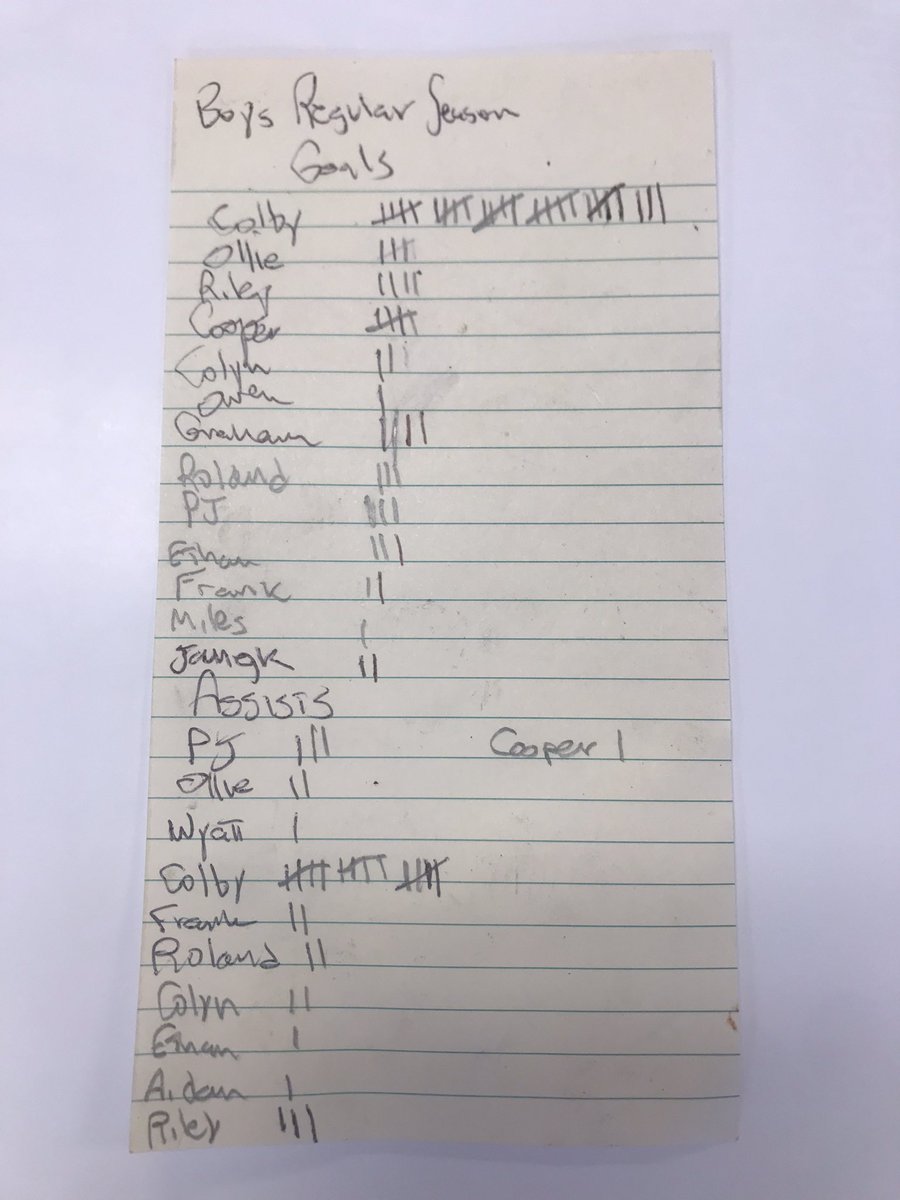 Boys Regular Season
Goals
Colby 𝍸 𝍸 𝍸 𝍸 𝍸 |||
Ollie ||||
Riley ||||
Cooper 𝍸
Colyn |||
Owen |
Graham ||||
Roland |||
PJ
Ethan |||
Frank ||
Miles |
Jangk ||
Assists
PJ ||| Cooper 1
Ollie ||
Wyatt |
Colby 𝍸 𝍸 𝍸
Frank ||
Roland ||
Colyn ||
Ethan |
Aidan |
Riley |||